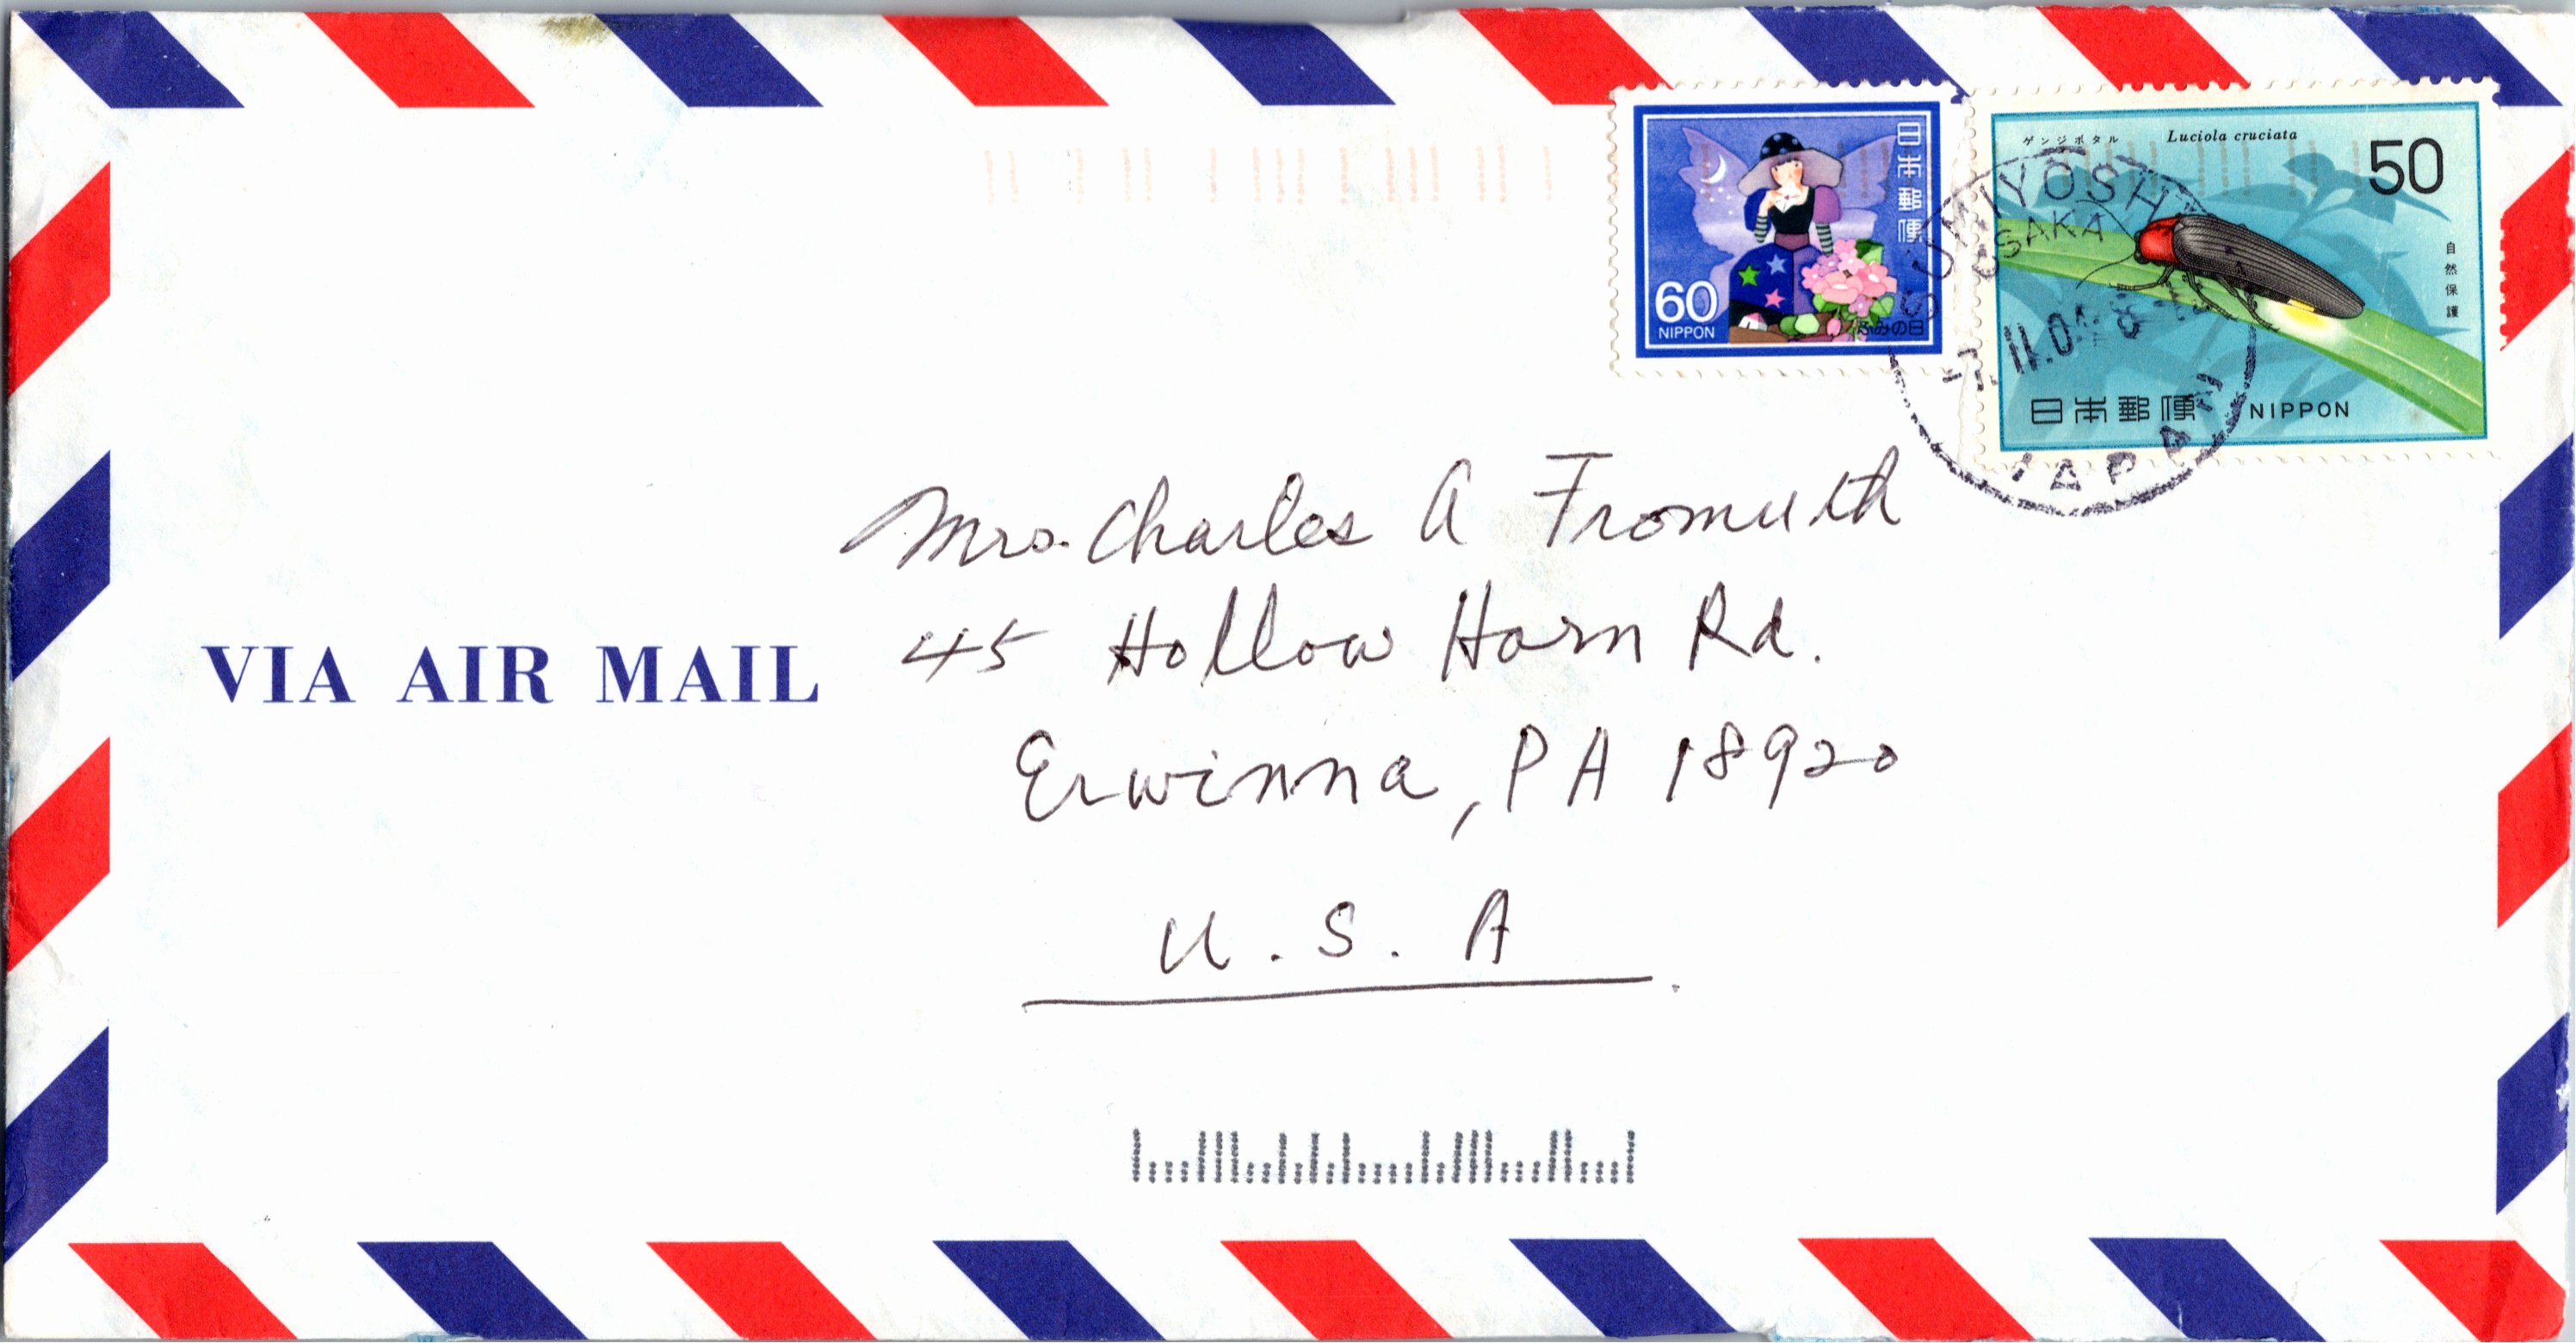 日本郵便
60
NIPPON
ふみの日
ゲンジボタル Luciola cruciata
50
自然保護
日本郵便 NIPPON
SUMIYOSHI
OSAKA
JAPAN
Mrs. Charles A Fromuth
45 Hollow Horn Rd.
VIA AIR MAIL
Erwinna, PA 18920
U.S.A